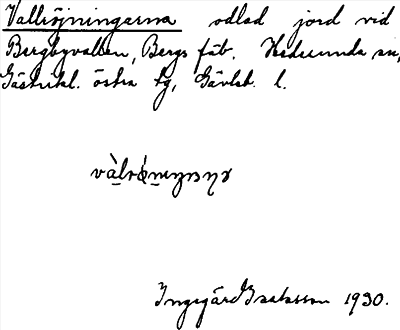 Vallröjningarna odlad jord vid
Bergbyvallen, Bergs fäb. Hedesunda sn,
Gästrikl. östra tg, Gävleb. l.
Ingegärd Isaksson 1930.